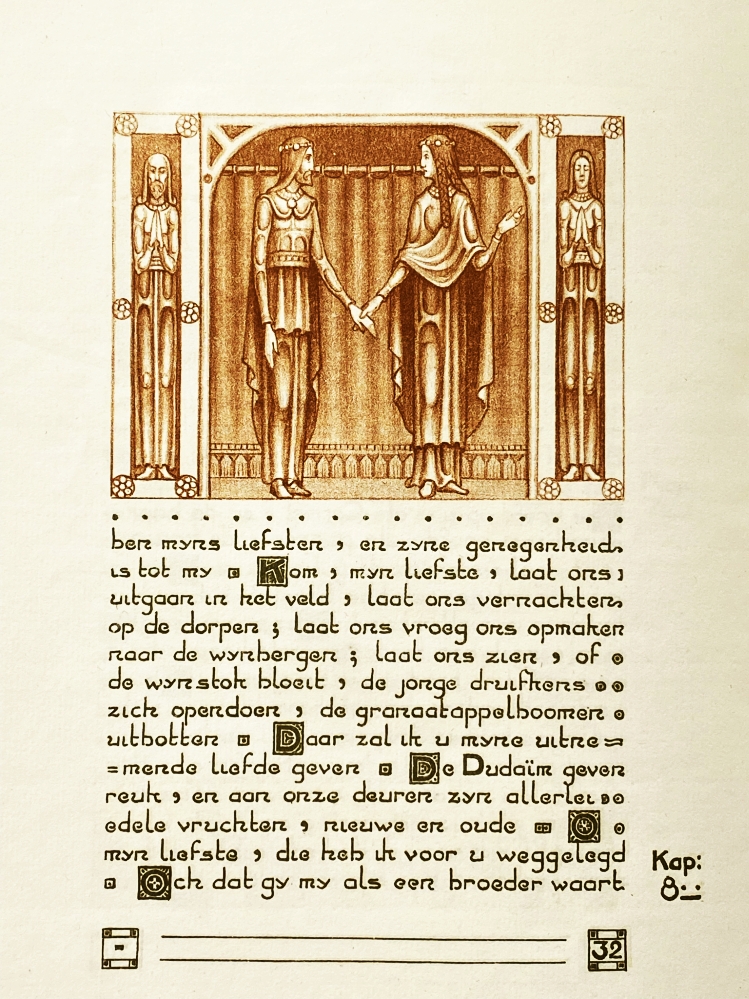 ben myns liefsten , en zyne genegenheid
is tot my Kom , myn liefste , laat ons
uitgaan in het veld , laat ons vernachten
op de dorpen ; laat ons vroeg ons opmaken
naar de wynbergen ; laat ons zien , of
de wynstok bloeit , de jonge druifkens
zich opendoen , de granaatappelboomen
uitbotten Daar zal ik u myne uitne=
=mende liefde geven De Dudaïm geven
reuk , en aan onze deuren zyn allerlei
edele vruchten , nieuwe en oude O
myn liefste , die heb ik voor u weggelegd
Och dat gy my als een broeder waart
Kap:
8
32